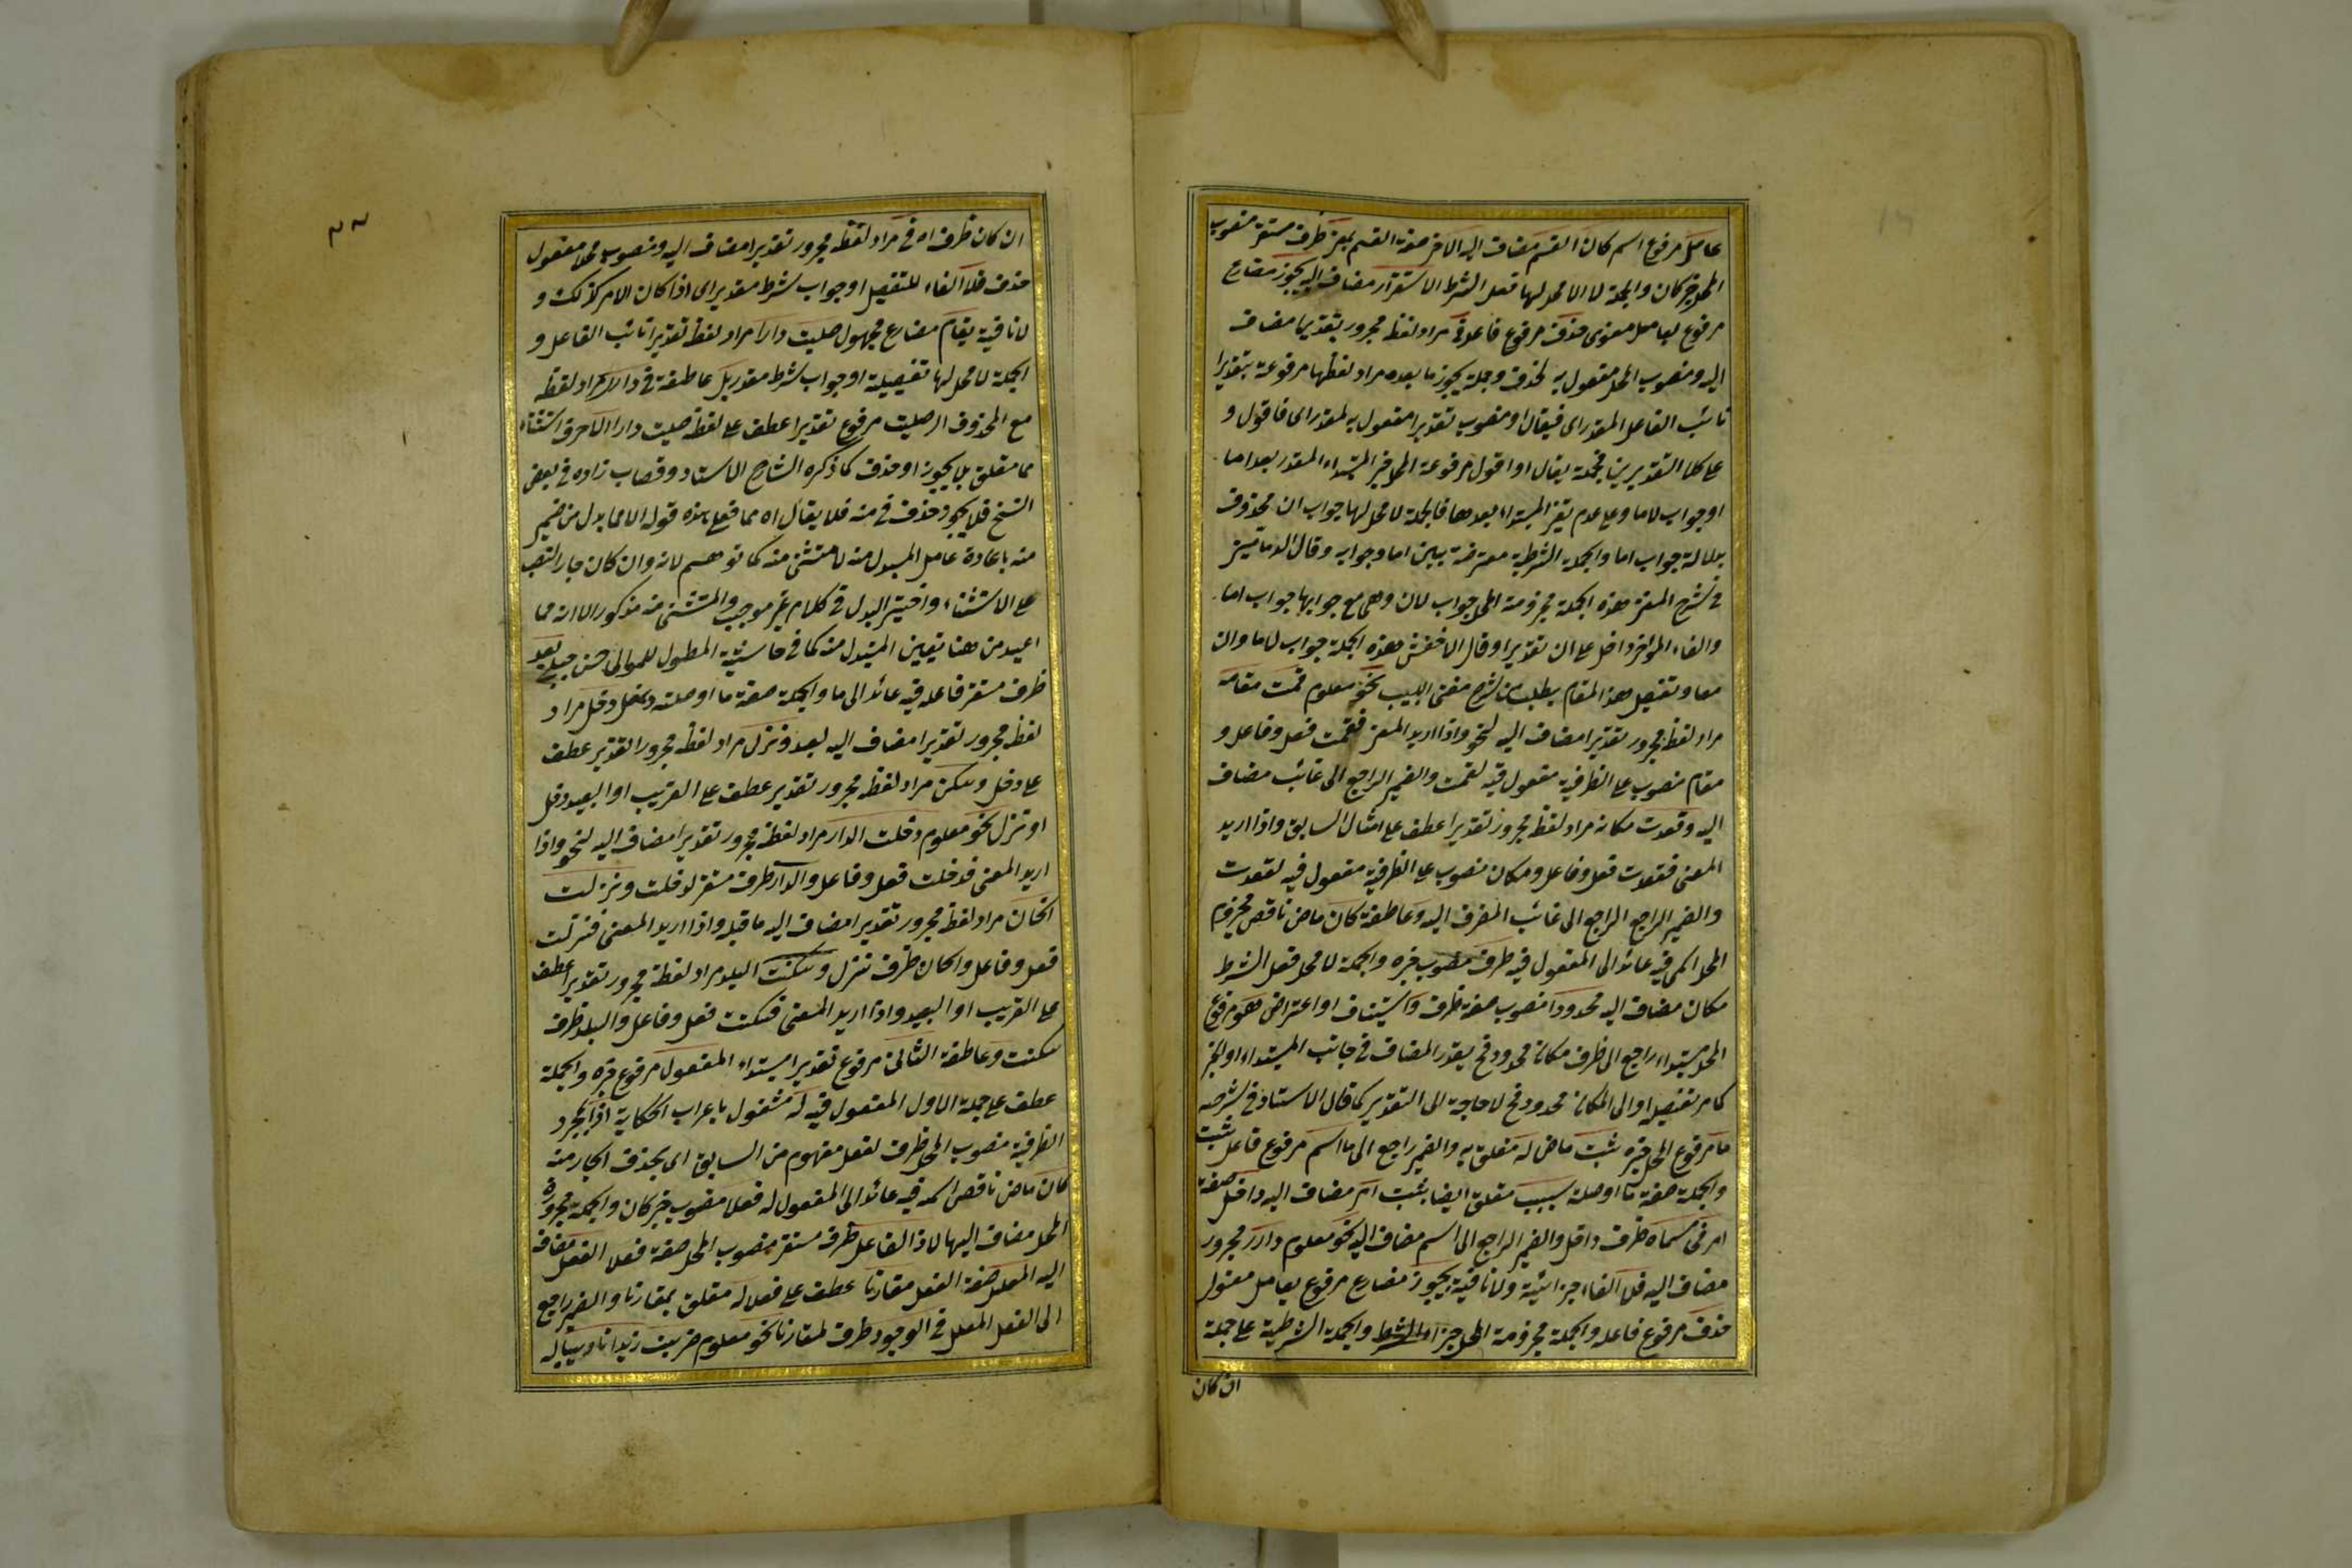 عامل مرفوع اسم كان القسم مضاف اليه الاخر صفة القسم بمعنى ظرف مستقر منصوب
المحل خبر كان والجملة لا محل لها فعل الشرط الاستقرار مضاف اليه يجوز مضارع
مرفوع بعامل معنوى حذف مرفوع فاعله في مراد لفظه مجرور تقديرا مضاف
اليه ومنصوب المحل مفعول به لحذف وجملة يجوز ما بعده مراد لفظها مرفوعة تقديرا
نائب الفاعل المقدر اى فيقال او منصوب تقديرا مفعول به لمقدر اى فاقول و
على كلا التقديرين فجملة يقال او اقول مرفوعة المحل خبر المبتداء المقدر بعد اما
او جواب لاما وعلى عدم المبتداء بعدها فالجملة لا محل لها جواب ان محذوف
بدلالة جواب اما والجملة الشرطية معترضة بين اما وجوابه وقال الدمامينى
فى شرح المغنى هذه الجملة مجزومة المحل جواب لان وهى مع جوابها جواب اما
والفاء المؤخر داخل على ان تقديرا وقال الاخفش هذه الجملة جواب لاما وان
معا وتفصيل هذا المقام يطلب من شرح مغنى اللبيب نحو معلوم قمت مقامه
مراد لفظه مجرور تقديرا مضاف اليه لنحو واذا اريد المعنى فقمت فعل وفاعل و
مقام منصوب على الظرفية مفعول فيه لقمت والضمير الراجع الى غائب مضاف
اليه وقعدت مكانه مراد لفظه مجرور تقديرا عطف على امثال السابق واذا اريد
المعنى فقعدت فعل وفاعل ومكان منصوب على الظرفية مفعول فيه لقعدت
والضمير الراجع الراجع الى غائب المضاف اليه وعاطفة كان ماض ناقص مجزوم
المحل اسمه فيه عائد الى المفعول فيه ظرف منصوب خبره والجملة لا محل فعل الشرط
مكان مضاف اليه محدودا منصوب صفة ظرف واستيناف او اعتراض هو مرفوع
المحل مبتداء راجع الى ظرف مكان محدود فح يقدر المضاف فى جانب المبتداء او الخبر
كما مر تفصيله او الى المكان محدود فح لا حاجة الى التقدير كما قال الاستاد فى شرحه
ما مرفوع المحل خبره ثبت ماض له متعلق به والضمير راجع الى ما اسم مرفوع فاعل ثبت
والجملة صفة ما او صلته بسبب متعلق ايضا بثبت امر مضاف اليه داخل صفة
امر فى مسماه ظرف داخل والضمير الراجع الى اسم مضاف اليه نحو معلوم دار مجرور
مضاف اليه فلا الفاء جزائية ولا نافية يجوز مضارع مرفوع بعامل معنوى
حذف مرفوع فاعله والجملة مجزومة المحل جزاء الشرط والجملة الشرطية على جملة
ان كان
ان كان ظرف اه فى مراد لفظه مجرور تقديرا مضاف اليه ومنصوب محلا مفعول
حذف فلا الفاء للتفصيل او جواب شرط مقدر اى اذا كان الامر كذلك و
لا نافية يقام مضارع مجهول صليت دارا مراد لفظه تقديرا نائب الفاعل و
الجملة لا محل لها تفصيلية او جواب شرط مقدر بل عاطفة فى دار مراد لفظه
مع المحذوف اى صليت مرفوع تقديرا عطف على لفظه صليت دارا الا حرف استثناء
مما متعلق بلا يجوز او حذف كما ذكره الشارح الاستاد وقصاب زاده فى بعض
النسخ فلا يجوز حذف فى منه فلا يقال اه مما فعلى هذه قوله الا مما بدل من ضمير
منه باعادة عامل المبدل منه لا مستثنى منه كما توهم لانه وان كان جاز النصب
على الاستثناء واختير البدل فى كلام غير موجب والمستثنى منه مذكور الا انه مما
اعيد من هنا تعيين المبدل منه كما فى حاشية المطول للمولى حسن چلبى بعد
ظرف مستقر فاعله فيه عائد الى ما والجملة صفة ما او صلته دخل مراد
لفظه مجرور تقديرا مضاف اليه لبعد ونزل مراد لفظه مجرور التقدير عطف
على دخل وسكن مراد لفظه مجرور تقدير عطف على القريب او البعيد دخل
او نزل نحو معلوم دخلت الدار مراد لفظه مجرور تقديرا مضاف اليه لنحو واذا
اريد المعنى فدخلت فعل وفاعل والدار ظرف مستقر لدخلت ونزلت
الخان مراد لفظه مجرور تقديرا مضاف اليه ما قبله واذا اريد المعنى فنزلت
فعل وفاعل والخان ظرف نزل وسكنت البلد مراد لفظه مجرور تقديرا عطف
على القريب او البعيد واذا اريد المعنى فسكنت فعل وفاعل والبلد ظرف
سكنت وعاطفة الثالث مرفوع تقديرا مبتداء المفعول مرفوع خبره والجملة
عطف على جملة الاول المفعول فيه له مشغول باعراب الحكاية اذا
الظرفية منصوب المحل ظرف لفعل مفهوم من السابق اى يحذف الجار منه
كان ماض ناقص اسمه فيه عائد الى المفعول له فعلا منصوب خبر كان والجملة مجرورة
المحل مضاف اليها لاذا لفاعل ظرف مستقر منصوب المحل صفة فعلا الفعل مضاف
اليه المعلل صفة الفعل مقارنا عطف على فعلا له متعلق بمقارنا والضمير راجع
الى الفعل المعلل فى الوجود ظرف لمقارنا نحو معلوم ضربت زيدا تاديبا له